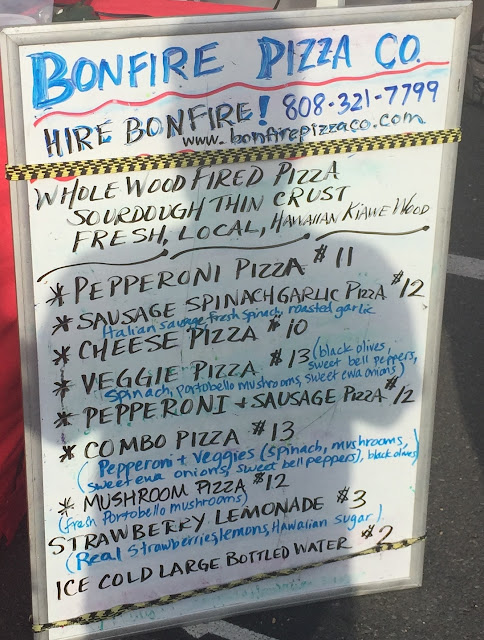 BONFIRE PIZZA CO.
HIRE BONFIRE! 808-321-7799
www.bonfirepizzaco.com
WHOLE WOOD FIRED PIZZA
SOURDOUGH THIN CRUST
FRESH, LOCAL, HAWAIIAN KIAWE WOOD
* PEPPERONI PIZZA $11
* SAUSAGE SPINACH GARLIC PIZZA $12
Italian sausage, fresh spinach, roasted garlic
* CHEESE PIZZA $10
* VEGGIE PIZZA $13 (black olives,
sweet bell peppers,
spinach, portobello mushrooms, sweet ewa onions)
* PEPPERONI + SAUSAGE PIZZA $12
* COMBO PIZZA $13
(Pepperoni + Veggies (spinach, mushrooms,
sweet ewa onions, sweet bell peppers), black olives)
* MUSHROOM PIZZA $12
(fresh Portobello mushrooms)
STRAWBERRY LEMONADE $3
(Real Strawberries, lemons, Hawaiian Sugar)
ICE COLD LARGE BOTTLED WATER $2